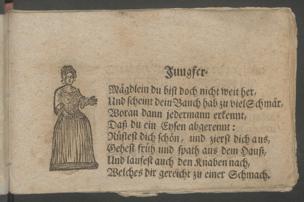 Jungfer.
Mägdlein du bist doch nicht weit her,
Und scheint dein Bauch hab zu viel Schmär,
Woran dann jedermann erkennt,
Daß du ein Eysen abgerennt:
Rüstest dich schön, und zierst dich aus,
Gehest früh und spath aus dem Hauß,
Und laufest auch den Knaben nach,
Welches dir gereicht zu einer Schmach.